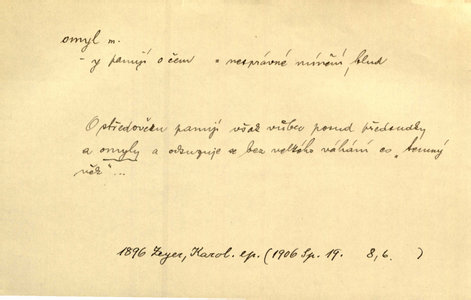 omyl m.
- y panují o čem = nesprávné mínění, blud
O středověku panují však vůbec posud předsudky
a omyly a odsuzuje se bez velkého váhání co „temný
věk“...
1896 Zeyer, Karol. ep. (1906 Sp. 19. 8, 6. )